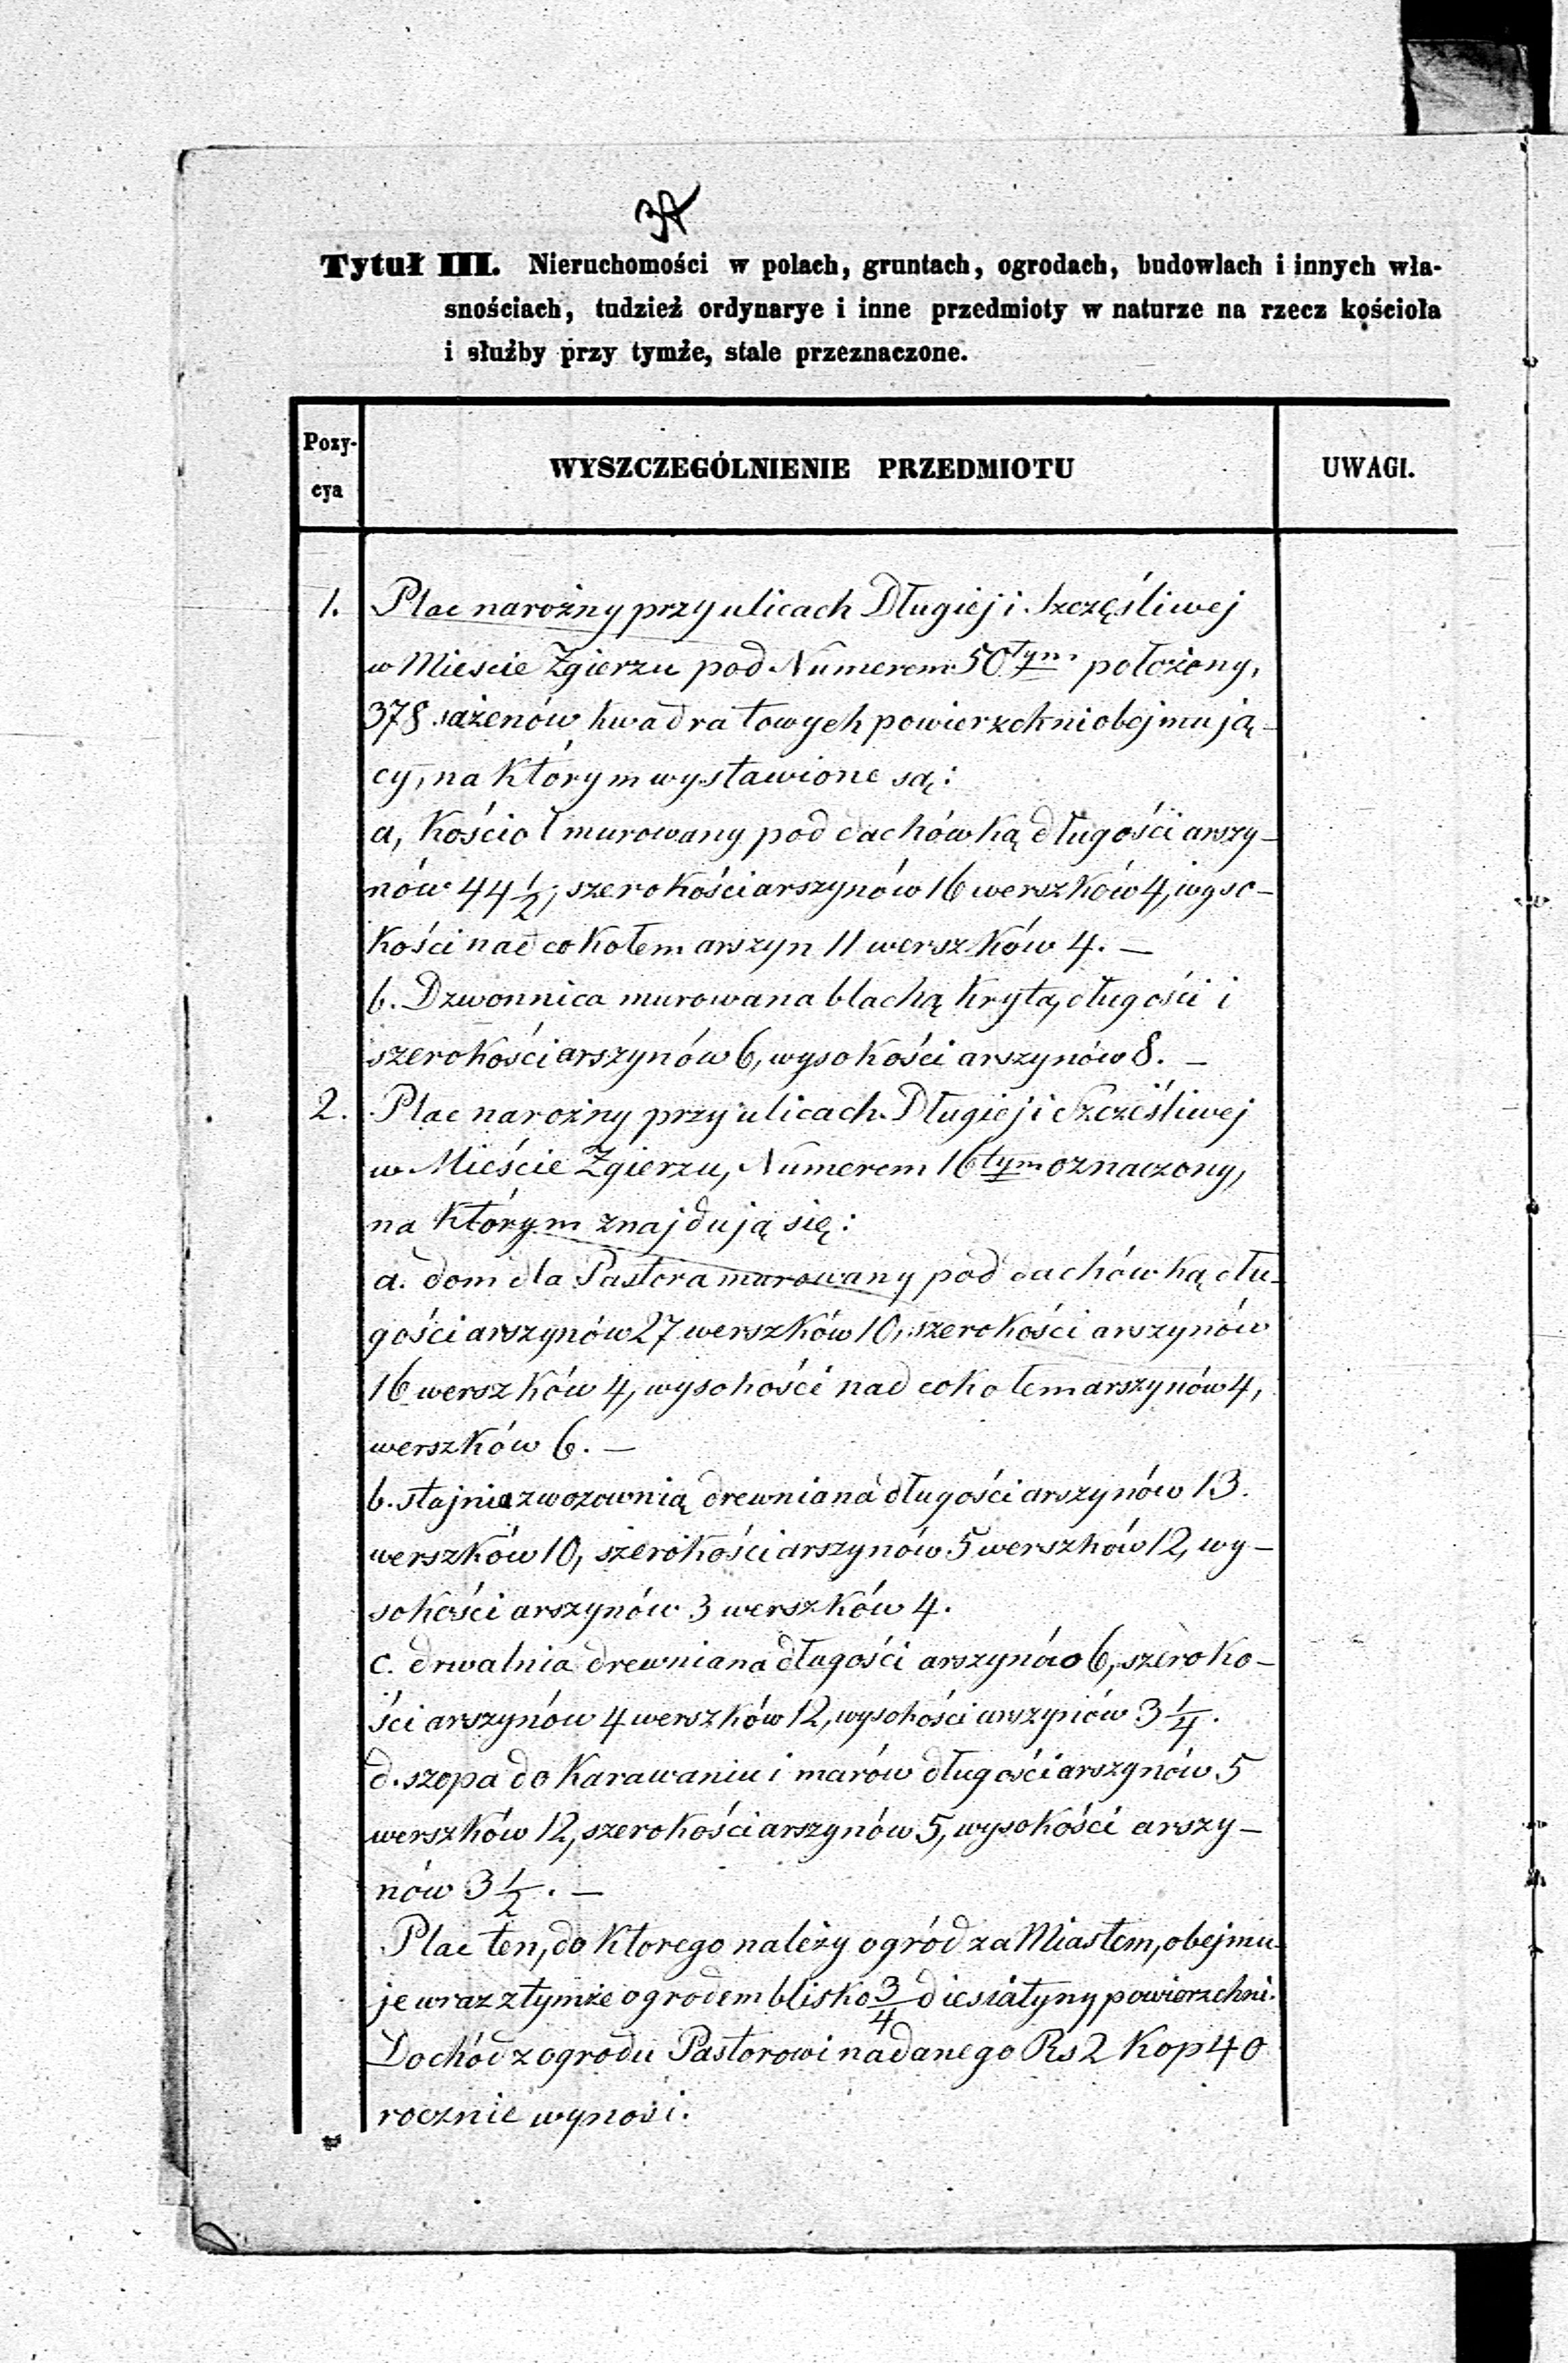 Tytuł III. Nieruchomości w polach, gruntach, ogrodach, budowlach i innych wła-
snościach, tudzież ordynarye i inne przedmioty w naturze na rzecz kościoła
i służby przy tymże, stale przeznaczone.
Pozy-
cya
WYSZCZEGÓLNIENIE PRZEDMIOTU
UWAGI.
1. Plac narożny przy ulicach Długiej i Szczęśliwej
w Mieście Zgierzu pod Numerem 50tym położony,
378 sażenów kwadratowych powierzchni obejmują-
cy, na którym wystawione są:
a, Kościoł murowany pod dachówką długości arszy-
nów 44 1/2; szerokości arszynów 16 werszków 4, wyso-
kości nad cokołem arszyn 11 werszków 4. —
b. Dzwonnica murowana blachą kryta, długości i
szerokości arszynów 6, wysokości arszynów 8. —
2. Plac narożny przy ulicach Długiej i Szcześliwej
w Mieście Zgierzu, Numerem 16tym oznaczony,
na którym znajdują się:
a. dom dla Pastora murowany pod dachówką dłu-
gości arszynów 27 werszków 10, szerokości arszynów
16 werszków 4, wysokości nad cokołem arszynów 4,
werszków 6. —
b. stajnia z wozownią drewniana długości arszynów 13.
werszków 10, szerokości arszynów 5 werszków 12, wy-
sokości arszynów 3 werszków 4.
c. drwalnia drewniana długości arszynów 6, szeroko-
ści arszynów 4 werszków 12, wysokości arszynów 3 1/4.
d. szopa do Karawaniu i marów długości arszynów 5
werszków 12, szerokości arszynów 5, wysokości arszy-
nów 3 1/2. —
Plac ten, do ktorego należy ogród za Miastem, obejmu-
je wraz z tymże ogrodem blisko 3/4 diesiatyny powierzchni.
Dochód z ogrodu Pastorowi nadanego Rs 2 Kop 40
rocznie wynosi.